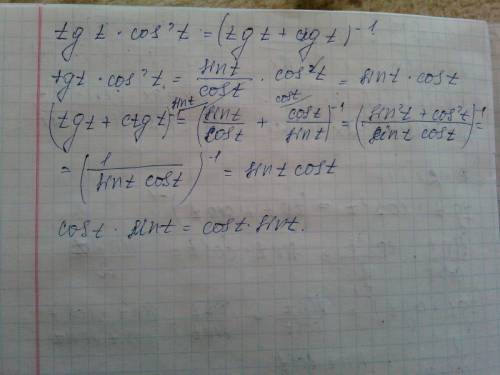 tg t · cos² t = (tg t + ctg t)⁻¹
tg t · cos² t = sint/cost · cos²t = sint · cost
(tg t + ctg t)⁻¹ = (sint/cost + cost/sint)⁻¹ = (sin²t + cos²t / sint cost)⁻¹ =
= (1 / sint cost)⁻¹ = sint cost
cost · sint = cost · sint.